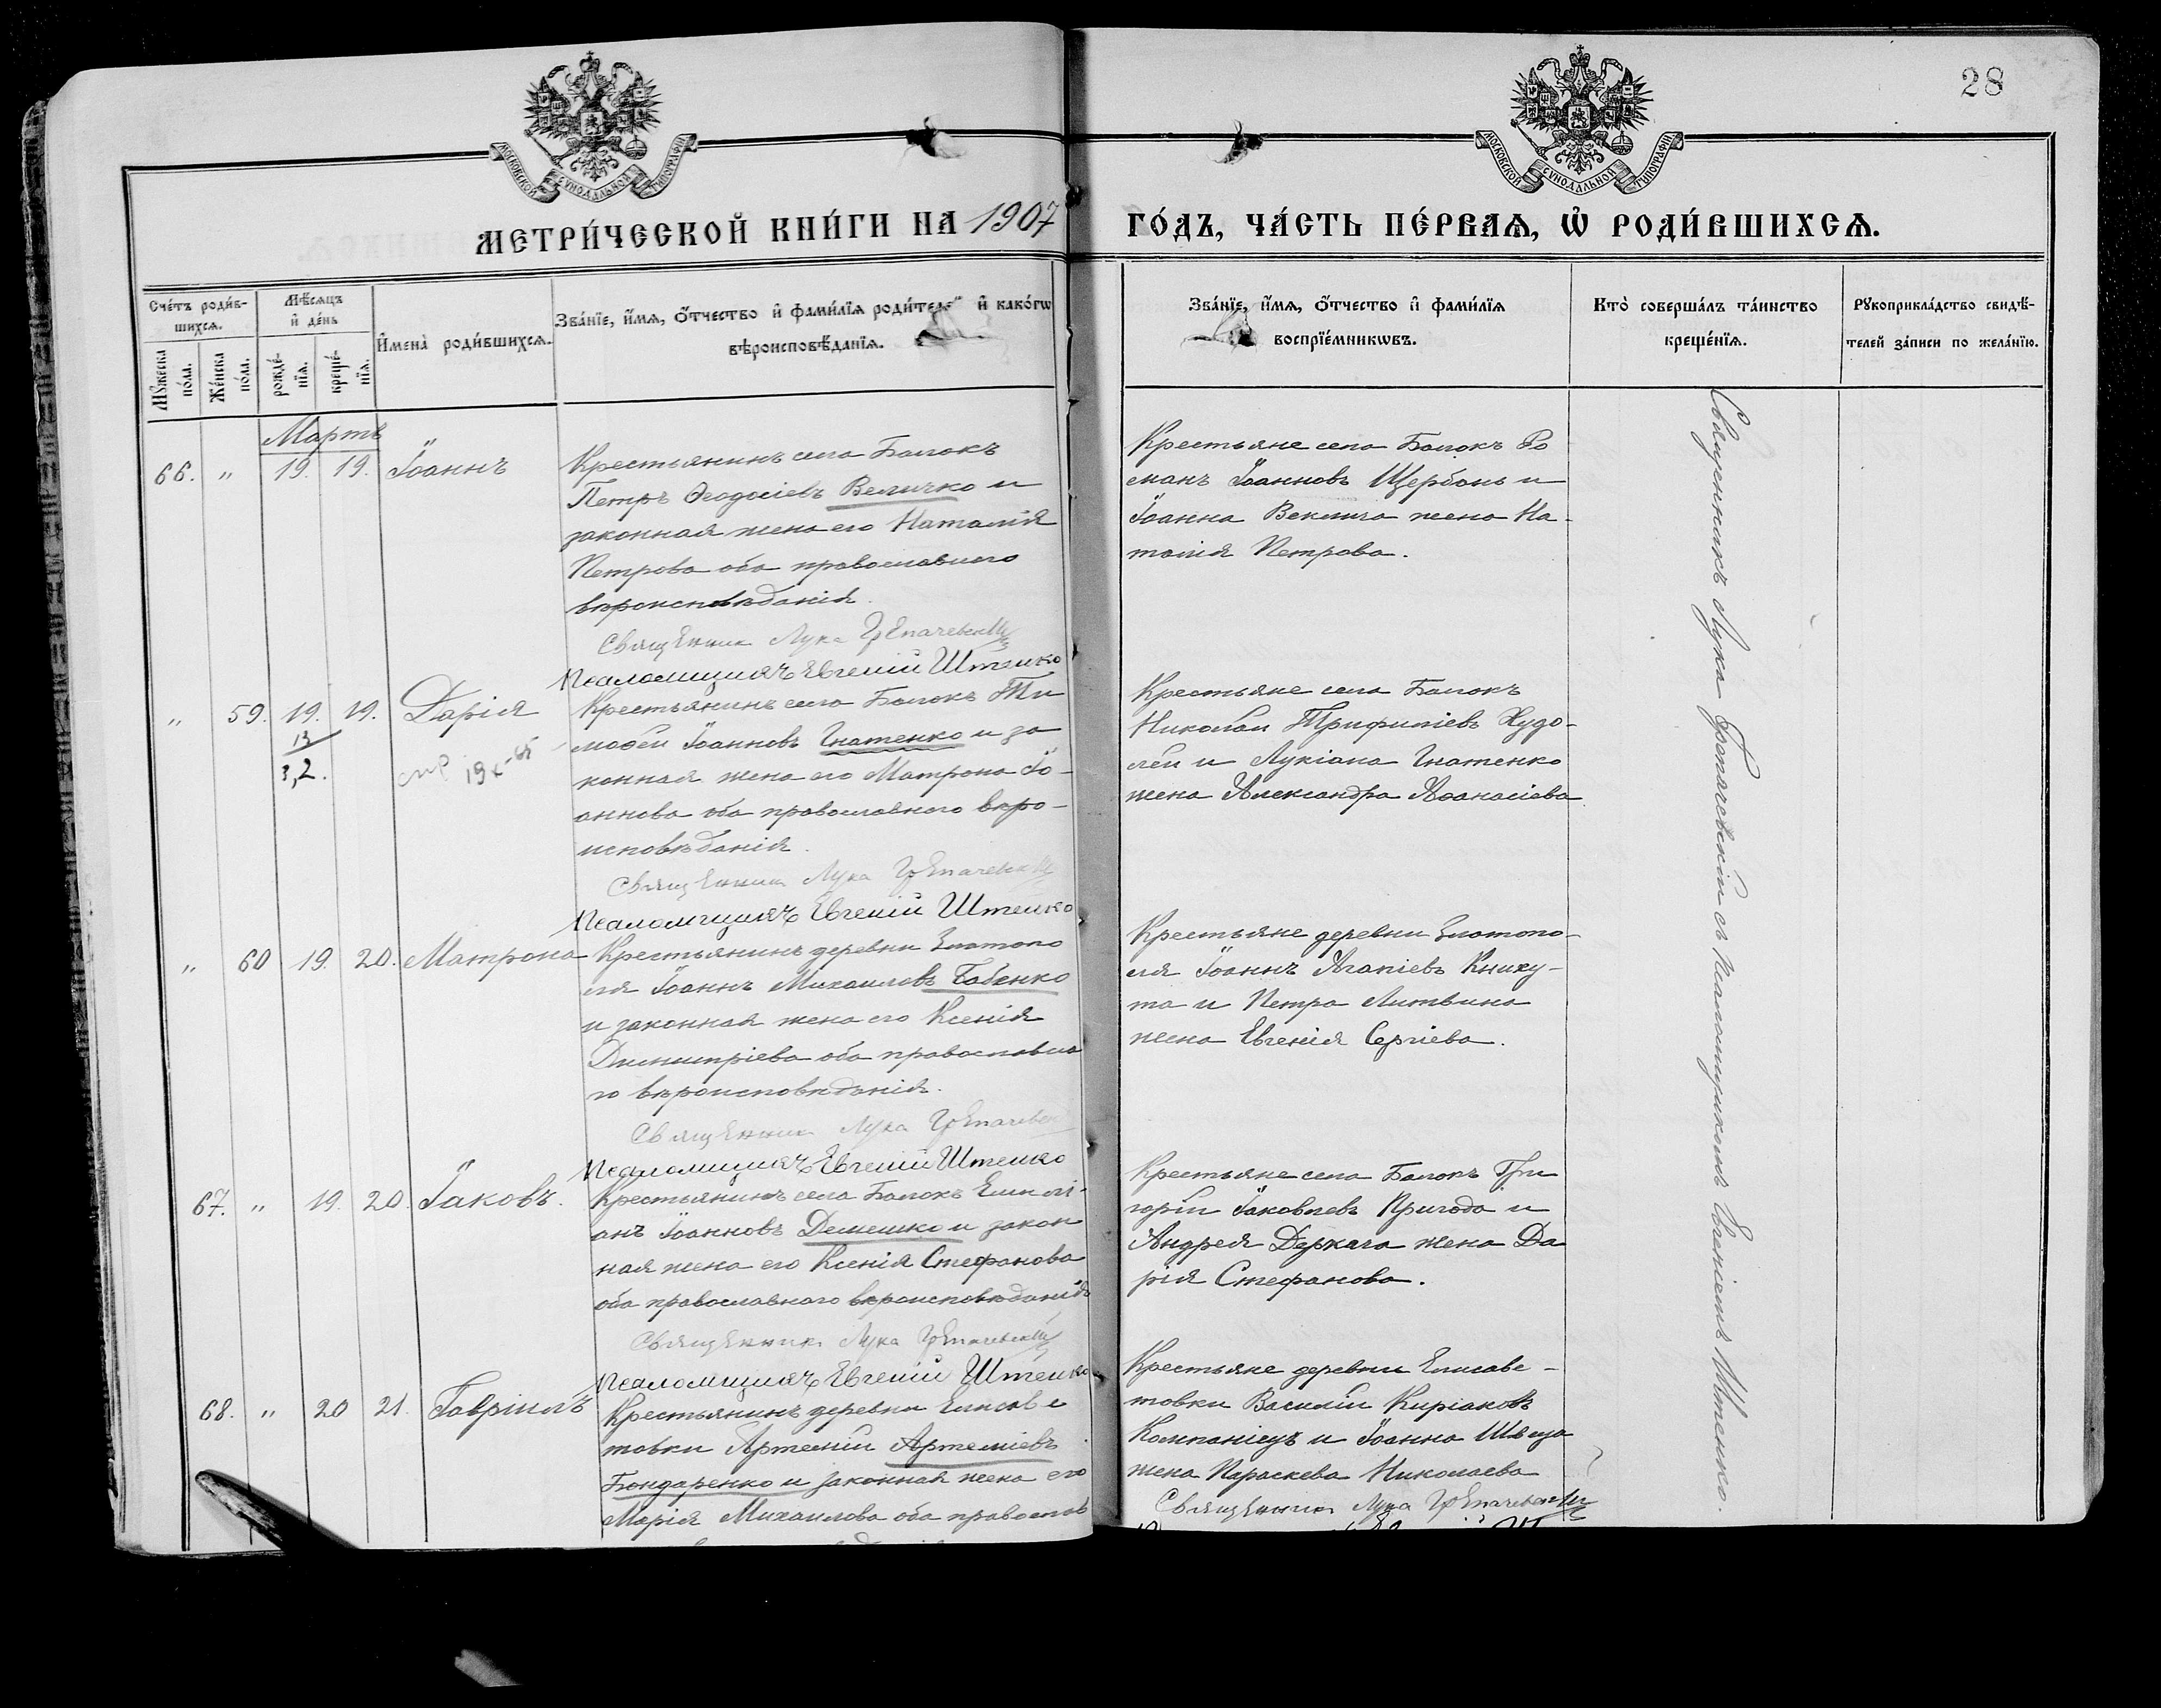 28
МОСКОВСКОЙ СѴНОДАЛЬНОЙ ТИПОГРАФІИ
МОСКОВСКОЙ СѴНОДАЛЬНОЙ ТИПОГРАФІИ
МЕТРИ́ЧЕСКОЙ КНИ́ГИ НА 1907
ГО́ДЪ, ЧА́СТЬ ПЕ́РВАѦ, Ѡ҆ РОДИ́ВШИХСѦ.
Сче́тъ роди́в-
шихсѧ.
Мꙋ́жеска по́ла.
Же́нска по́ла.
Мѣ́сѧцъ
и҆ де́нь
рожде́-
нїѧ.
креще́-
нїѧ.
И҆мена̀ роди́вшихсѧ.
Зва́нїе, и҆́мѧ, ѻ҆́тчество и҆ фами́лїѧ роди́теле и҆ како́гѡ
вѣроисповѣ́данїѧ.
Зва́нїе, и҆́мѧ, ѻ҆́тчество и҆ фами́лїѧ
воспрїе́мникѡвъ.
Кто̀ соверша́лъ та́инство
креще́нїѧ.
Рꙋкоприкла́дство свидѣ́-
телей за́писи по жела́нїю.
Мартъ
66. " 19. 19. Іоаннъ
Крестьянинъ села Балокъ
Петръ Ѳеодосіевъ Величко и
законная жена его Наталія
Петрова оба православнаго
вѣроисповѣданія.
Священник Лука
Псаломщикъ Евгеній Штенко
Крестьяне села Балокъ Ро
манъ Іоанновъ Щербань и
Іоанна жена На-
талія Петрова.
" 59. 19. 19. Дарія
13
3,2.
Крестьянинъ села Балокъ Ти
мофей Іоанновъ Гнатенко и за
конная жена его Матрона Іо-
аннова оба православнаго вѣро-
исповѣданія.
Священник Лука
Псаломщикъ Евгеній Штенко
Крестьяне села Балокъ
Николай Трифиліевъ Худо-
лей и Лукіана Гнатенко
жена Александра Аѳанасіева
" 60 19. 20. Матрона
Крестьянинъ деревни Златопо
ля Іоаннъ Михаиловъ Бабенко
и законная жена его Ксенія
Димитріева оба православна
го вѣроисповѣданія.
Священник Лука
Псаломщикъ Евгеній Штенко
Крестьяне деревни Златопо-
ля Іоаннъ Агапіевъ Книху-
та и Петра Литвина
жена Евгенія Сергіева.
67. " 19. 20. Іаковъ.
Крестьянинъ села Балокъ Емилі-
анъ Іоанновъ Демешко и закон
ная жена его Ксенія Стефанова
оба православнаго вѣроисповѣданія
Священник Лука
Псаломщикъ Евгеній Штенко
Крестьяне села Балокъ Гри
горій Іаковлевъ Пригода и
Андрея Деркача жена Да
рія Стефанова.
68. " 20 21. Гавріилъ
Крестьянинъ деревни Елисаве
товки Артемій Артеміевъ
Бондаренко и законная жена его
Марія Михаилова оба православ
Крестьяне деревни Елисаве-
товки Василій Киріаковъ
Компаніецъ и Іоанна Швеца
жена Параскева Николаева
Священник Лука
Священникъ Лука съ Псаломщикомъ Евгеніемъ Штенко.